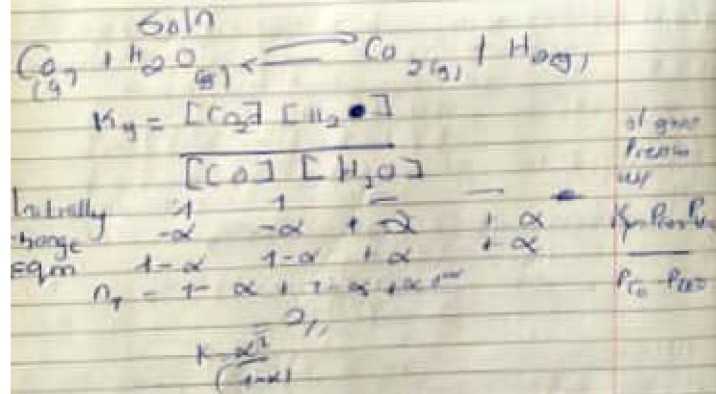 Soln
CO(g) + H2O(g) ⇌ CO2(g) + H2(g)
K = [CO2] [H2]
[CO] [H2O]
Initially 1 1 - -
change -α -α + α + α
eqm 1-α 1-α + α + α
nT = 1- α + 1- α + α + α
= 2//
K = α²
(1-α)
of gas
Pressure
KP = PCO2 PH2
PCO - PH2O